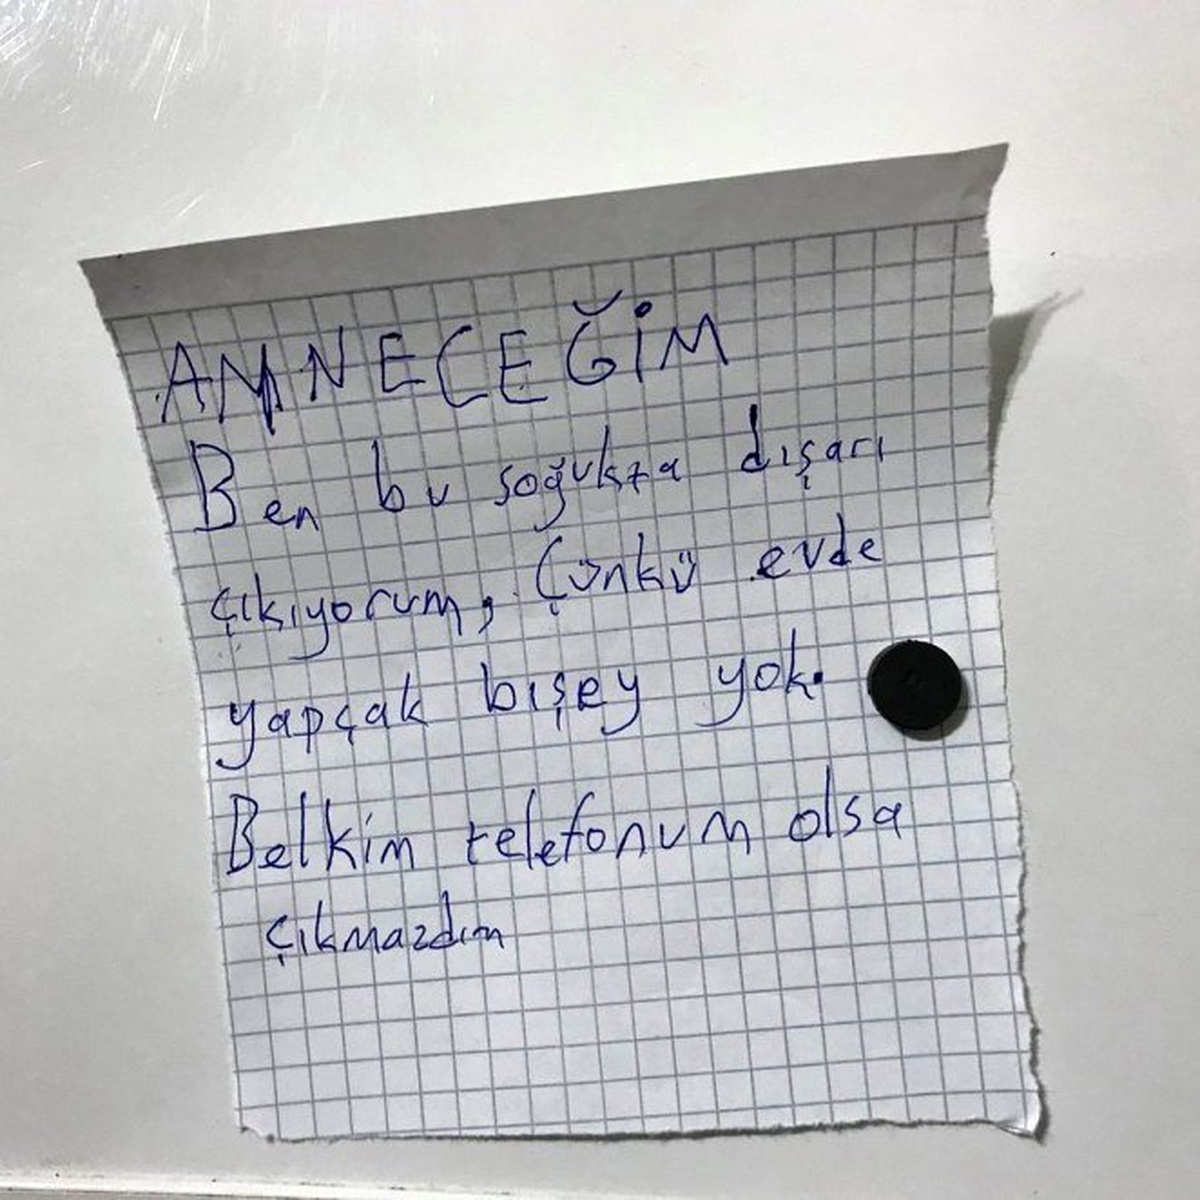 ANNECEĞİM
Ben bu soğukta dışarı
çıkıyorum, Çünkü evde
yapçak bışey yok.
Belkim telefonum olsa
çıkmazdım